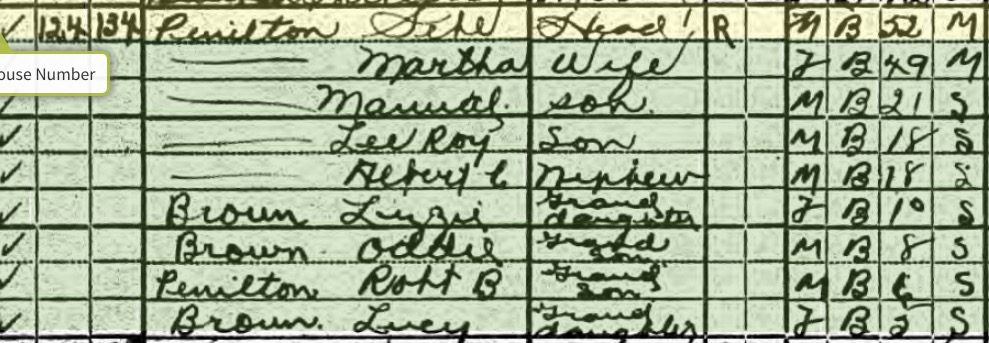 124 134 Penilton Head R M B 52 M
ouse Number
Martha Wife F B 49 M
Manuel. son M B 21 S
Lee Roy Son M B 18 S
Albert C Nephew M B 18 S
Brown Lizzie Grand daughter F B 10 S
Brown Oddie Grand son M B 8 S
Penilton Robt B Grand son M B 6 S
Brown. Lucy Grand daughter F B S